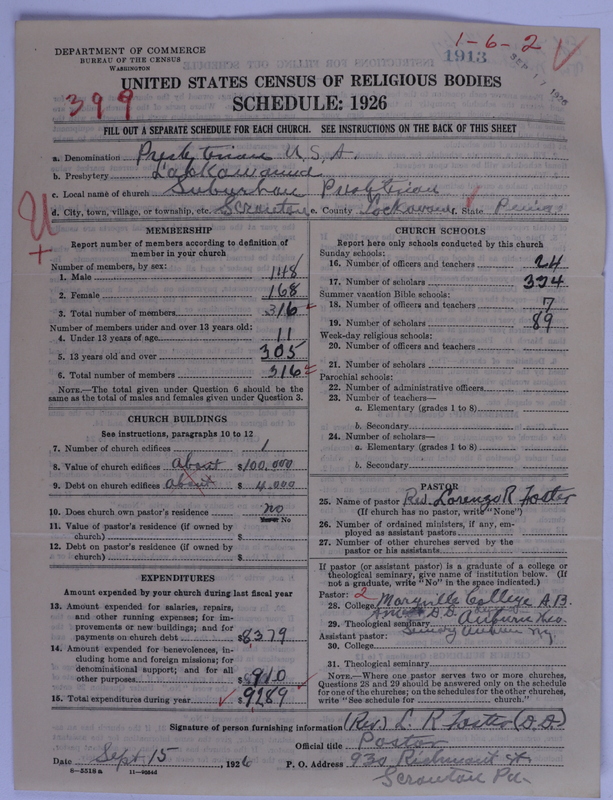 DEPARTMENT OF COMMERCE
BUREAU OF THE CENSUS
WASHINGTON
1-6-2
1913
SEP 17 1926
399
UNITED STATES CENSUS OF RELIGIOUS BODIES
SCHEDULE: 1926
FILL OUT A SEPARATE SCHEDULE FOR EACH CHURCH. SEE INSTRUCTIONS ON THE BACK OF THIS SHEET
a. Denomination Presbyterian U.S.A.
b. Presbytery Lackawanna
c. Local name of church Suburban Presbyterian
d. City, town, village, or township, etc. Scranton e. County Lackawanna f. State Penna
MEMBERSHIP
Report number of members according to definition of
member in your church
Number of members, by sex:
1. Male 148
2. Female 168
3. Total number of members 316
Number of members under and over 13 years old:
4. Under 13 years of age 11
5. 13 years old and over 305
6. Total number of members 316
NOTE.—The total given under Question 6 should be
same as the total of males and females given under Question 3.
CHURCH BUILDINGS
See instructions, paragraphs 10 to 12
7. Number of church edifices 1
8. Value of church edifices about $100,000
9. Debt on church edifices about $4,000
10. Does church own pastor's residence no
Yes or No
11. Value of pastor's residence (if owned by
church) $
12. Debt on pastor's residence (if owned by
church) $
EXPENDITURES
Amount expended by your church during last fiscal year
13. Amount expended for salaries, repairs,
and other running expenses; for im-
provements or new buildings; and for
payments on church debt $8379
14. Amount expended for benevolences, in-
cluding home and foreign missions; for
denominational support; and for all
other purposes $910
15. Total expenditures during year $9289
CHURCH SCHOOLS
Report here only schools conducted by this church
Sunday schools:
16. Number of officers and teachers 24
17. Number of scholars 324
Summer vacation Bible schools:
18. Number of officers and teachers 7
19. Number of scholars 89
Week-day religious schools:
20. Number of officers and teachers
21. Number of scholars
Parochial schools:
22. Number of administrative officers
23. Number of teachers—
a. Elementary (grades 1 to 8)
b. Secondary
24. Number of scholars—
a. Elementary (grades 1 to 8)
b. Secondary
PASTOR
25. Name of pastor Rev. Lorenzo R Foster
(If church has no pastor, write "None")
26. Number of ordained ministers, if any, em-
ployed as assistant pastors
27. Number of other churches served by the
pastor or his assistants
If pastor (or assistant pastor) is a graduate of a college or
theological seminary, give name of institution below. (If
not a graduate, write "No" in the space indicated.)
Pastor: 2
28. College Maryville College A.B.
29. Theological seminary Auburn Theo.
Auburn Ny.
Assistant pastor:
30. College
31. Theological seminary
NOTE.—Where one pastor serves two or more churches,
Questions 28 and 29 should be answered only on the schedule
for one of the churches; on the schedules for the other churches,
write "See schedule for church."
Signature of person furnishing information (Rev.) L. R. Foster (D.D.)
Official title Pastor
Date Sept. 15, 1926 P. O. Address 930 Richmont St
Scranton Pa.
8—5518a 11—9264d